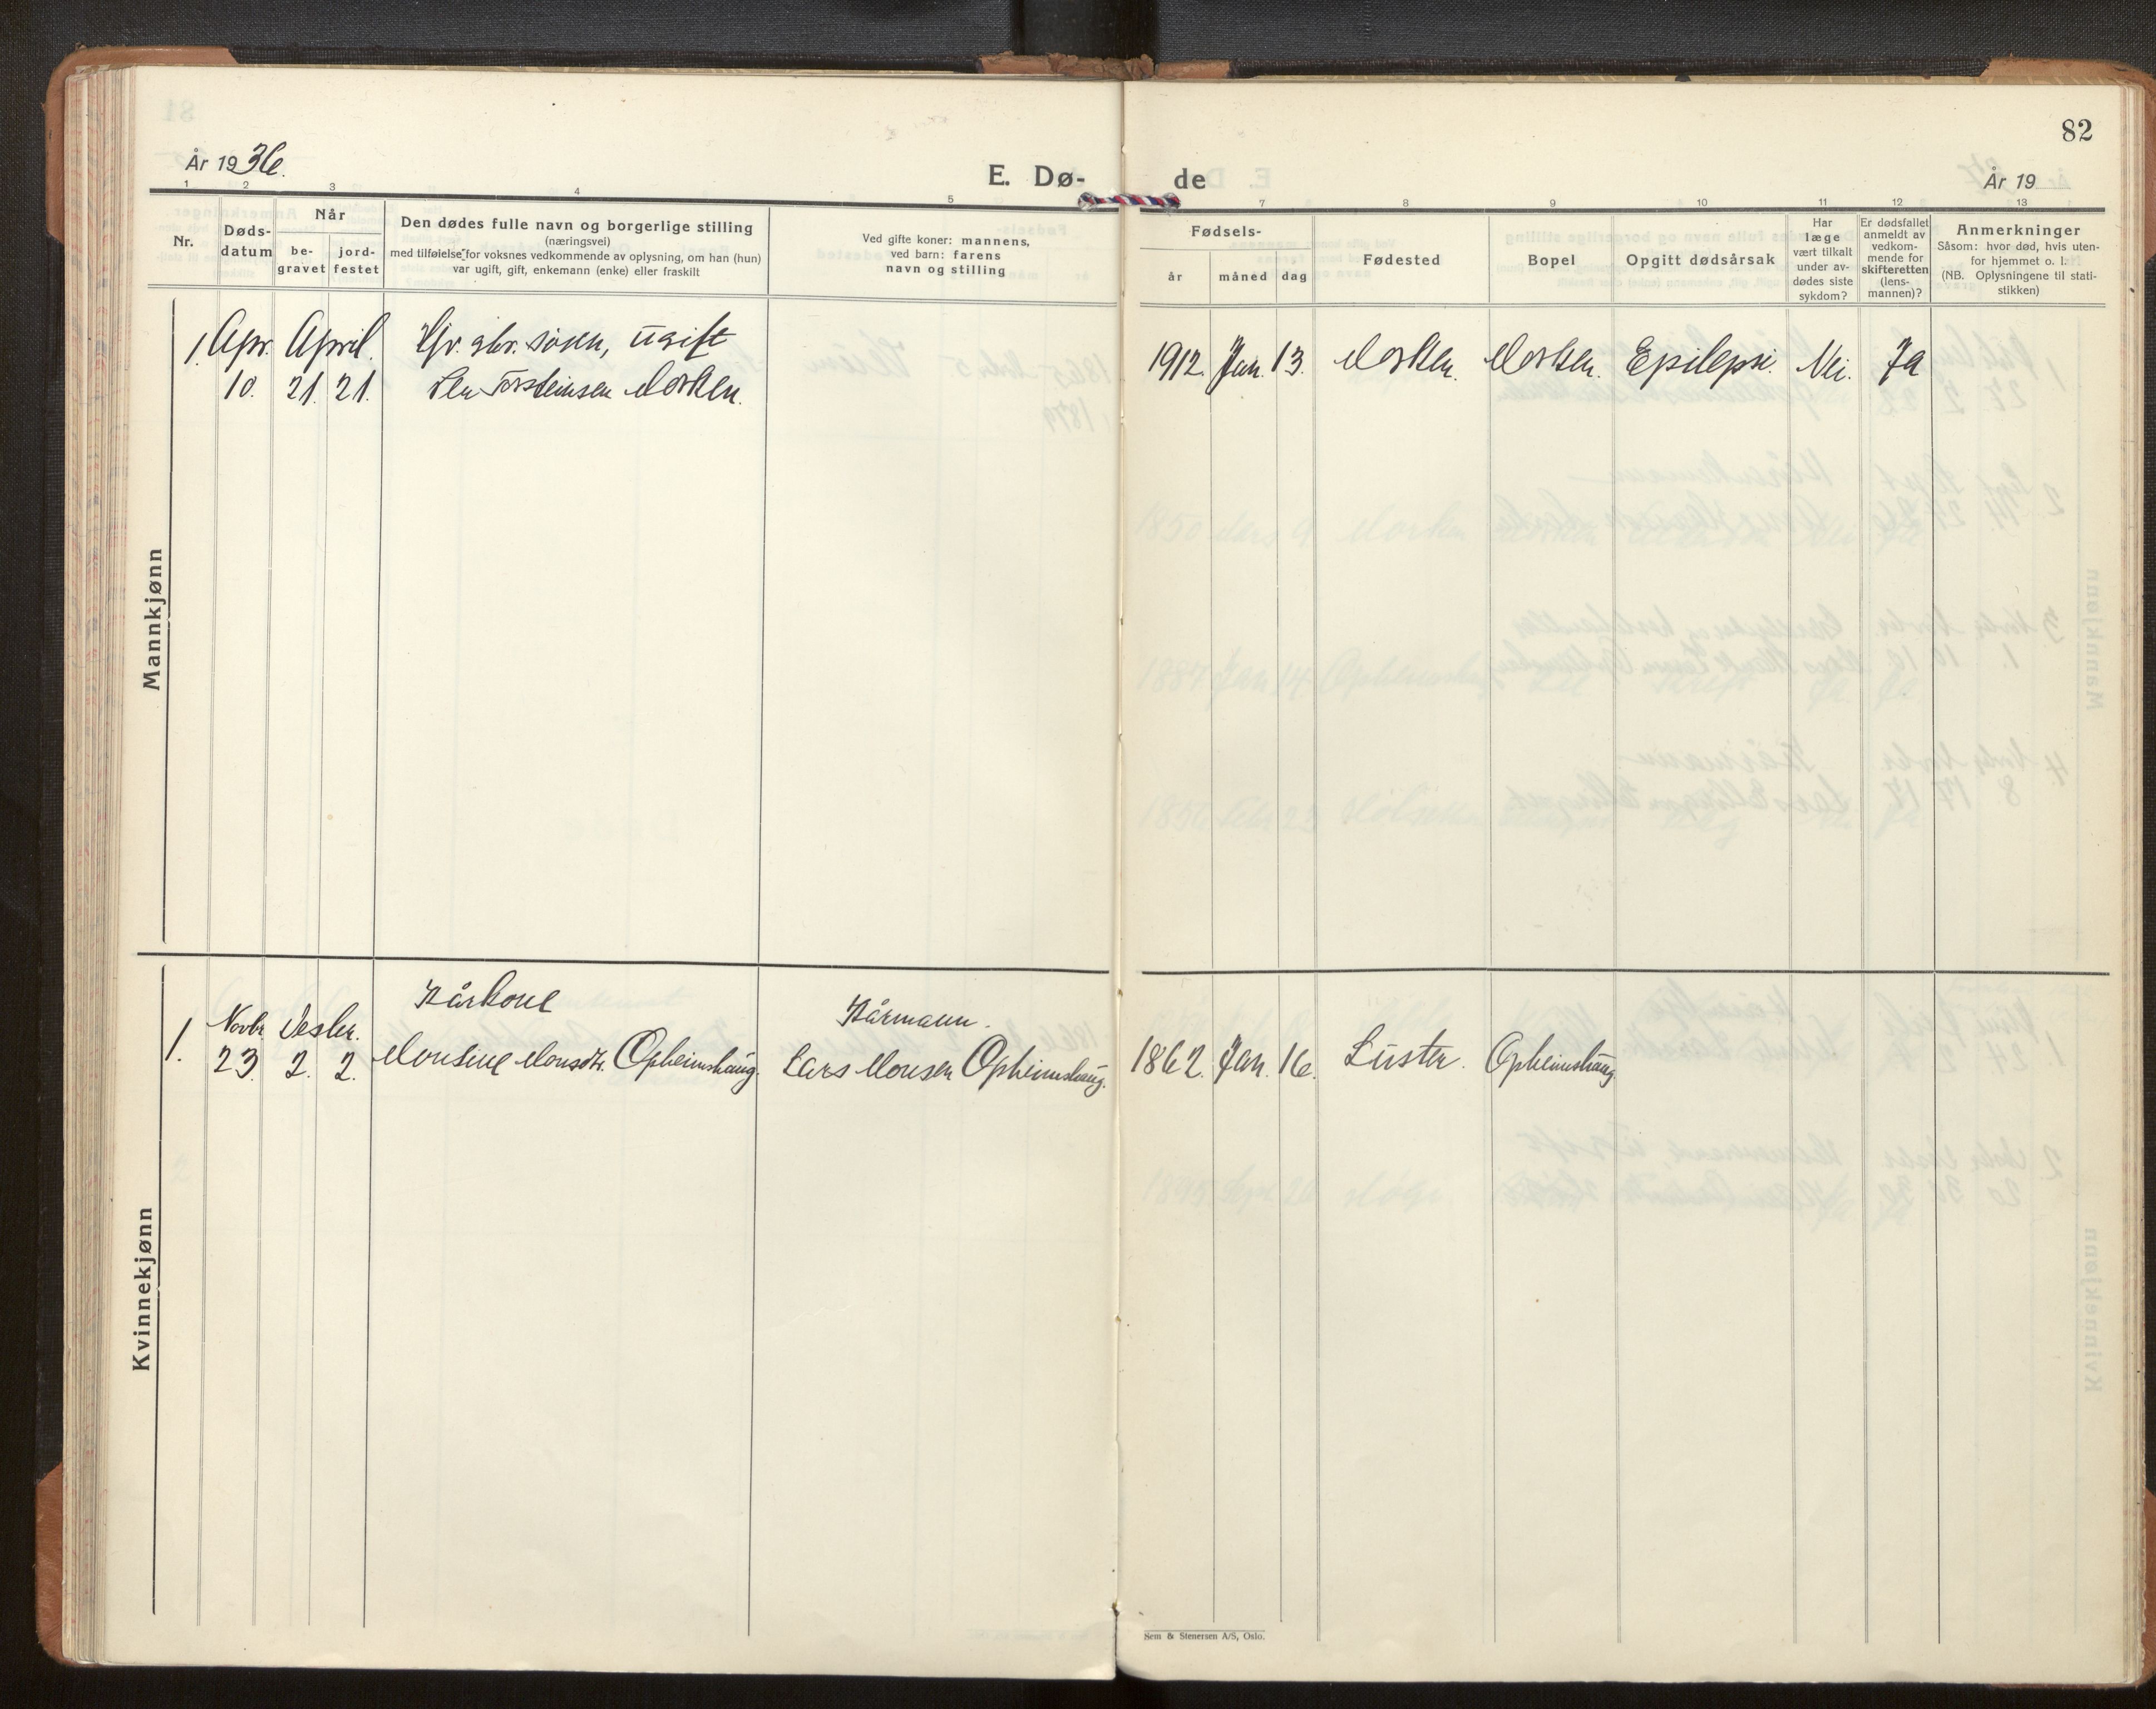 82
År 1936.
E. Dø-
de
År 19
1 2 3 4 5 7 8 9 10 11 12 13
Nr.
Døds-
datum
Når
be-
gravet
jord-
festet
Den dødes fulle navn og borgerlige stilling
(næringsvei)
med tilføielse for voksnes vedkommende av oplysning, om han (hun)
var ugift, gift, enkemann (enke) eller fraskilt
Ved gifte koner: mannens,
ved barn: farens
navn og stilling
Fødsels-
år
måned
dag
Fødested
Bopel
Opgitt dødsårsak
Har
læge
vært tilkalt
under av-
dødes siste
sykdom?
Er dødsfallet
anmeldt av
vedkom-
mende for
skifteretten
(lens-
mannen)?
Anmerkninger
Såsom: hvor død, hvis uten-
for hjemmet o. l.
(NB. Oplysningene til stati-
stikken)
Mannkjønn
1. Apr. April. gbr. søn, ugift
10. 21. 21. Torsteinsen Morken.
1912. Jan. 13. Morken. Morken. Epilepsi. Nei. Ja
Kvinnekjønn
Kårkone
Kårmann.
1. Novbr. Desbr.
23. 2. 2. Monsine Monsdtr. Opheimshaug. Lars Monsen Opheimshaug.
1862. Jan. 16. Luster. Opheimshaug.
Sem & Stenersen A/S, Oslo.